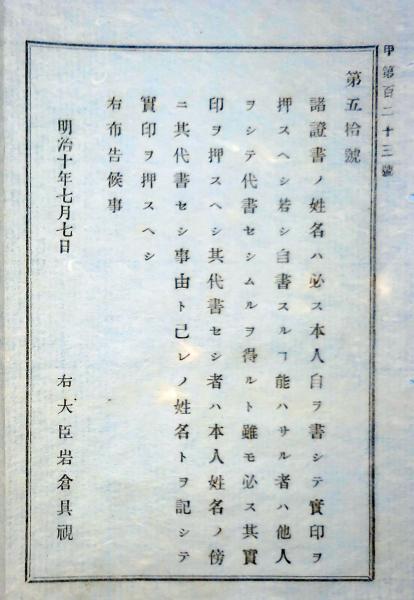 甲第百二十三號
第五拾號
諸證書ノ姓名ハ必ス本人自ヲ書シテ實印ヲ
押スヘシ若シ自書スルヿ能ハサル者ハ他人
ヲシテ代書セシムルヲ得ルト雖モ必ス其實
印ヲ押スヘシ其代書セシ者ハ本人姓名ノ傍
ニ其代書セシ事由ト己レノ姓名トヲ記シテ
實印ヲ押スヘシ
右布告候事
明治十年七月七日
右大臣岩倉具視